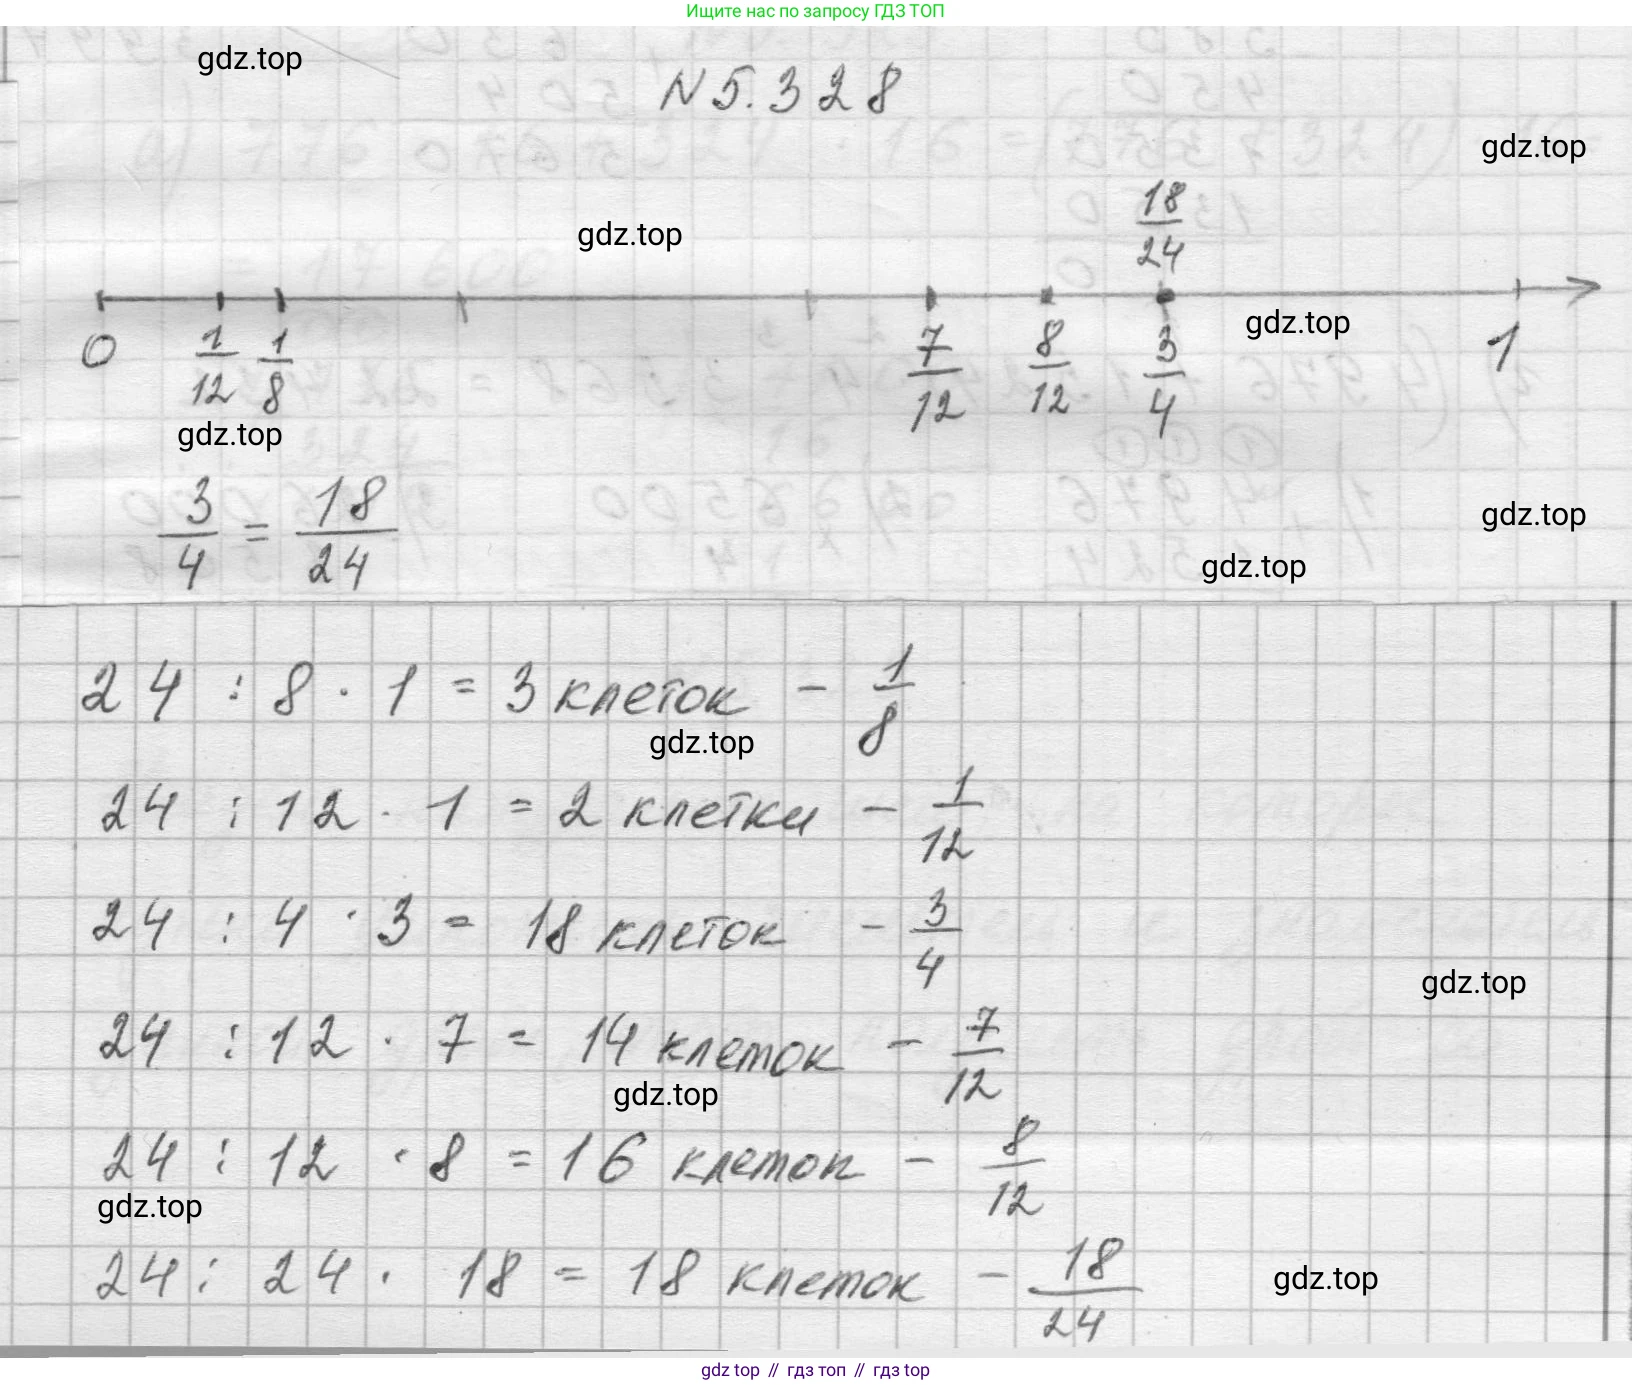 Ищите нас по запросу ГДЗ ТОП
gdz.top
N 5.328
gdz.top
gdz.top
18/24
0 1/12 1/8 7/12 8/12 3/4 1
gdz.top
gdz.top
3/4 = 18/24
gdz.top
gdz.top
24 : 8 · 1 = 3 клеток - 1/8
gdz.top
24 : 12 · 1 = 2 клетки - 1/12
24 : 4 · 3 = 18 клеток - 3/4
gdz.top
24 : 12 · 7 = 14 клеток - 7/12
gdz.top
24 : 12 · 8 = 16 клеток - 8/12
gdz.top
24 : 24 · 18 = 18 клеток - 18/24
gdz.top
gdz top // гдз топ // гдз top